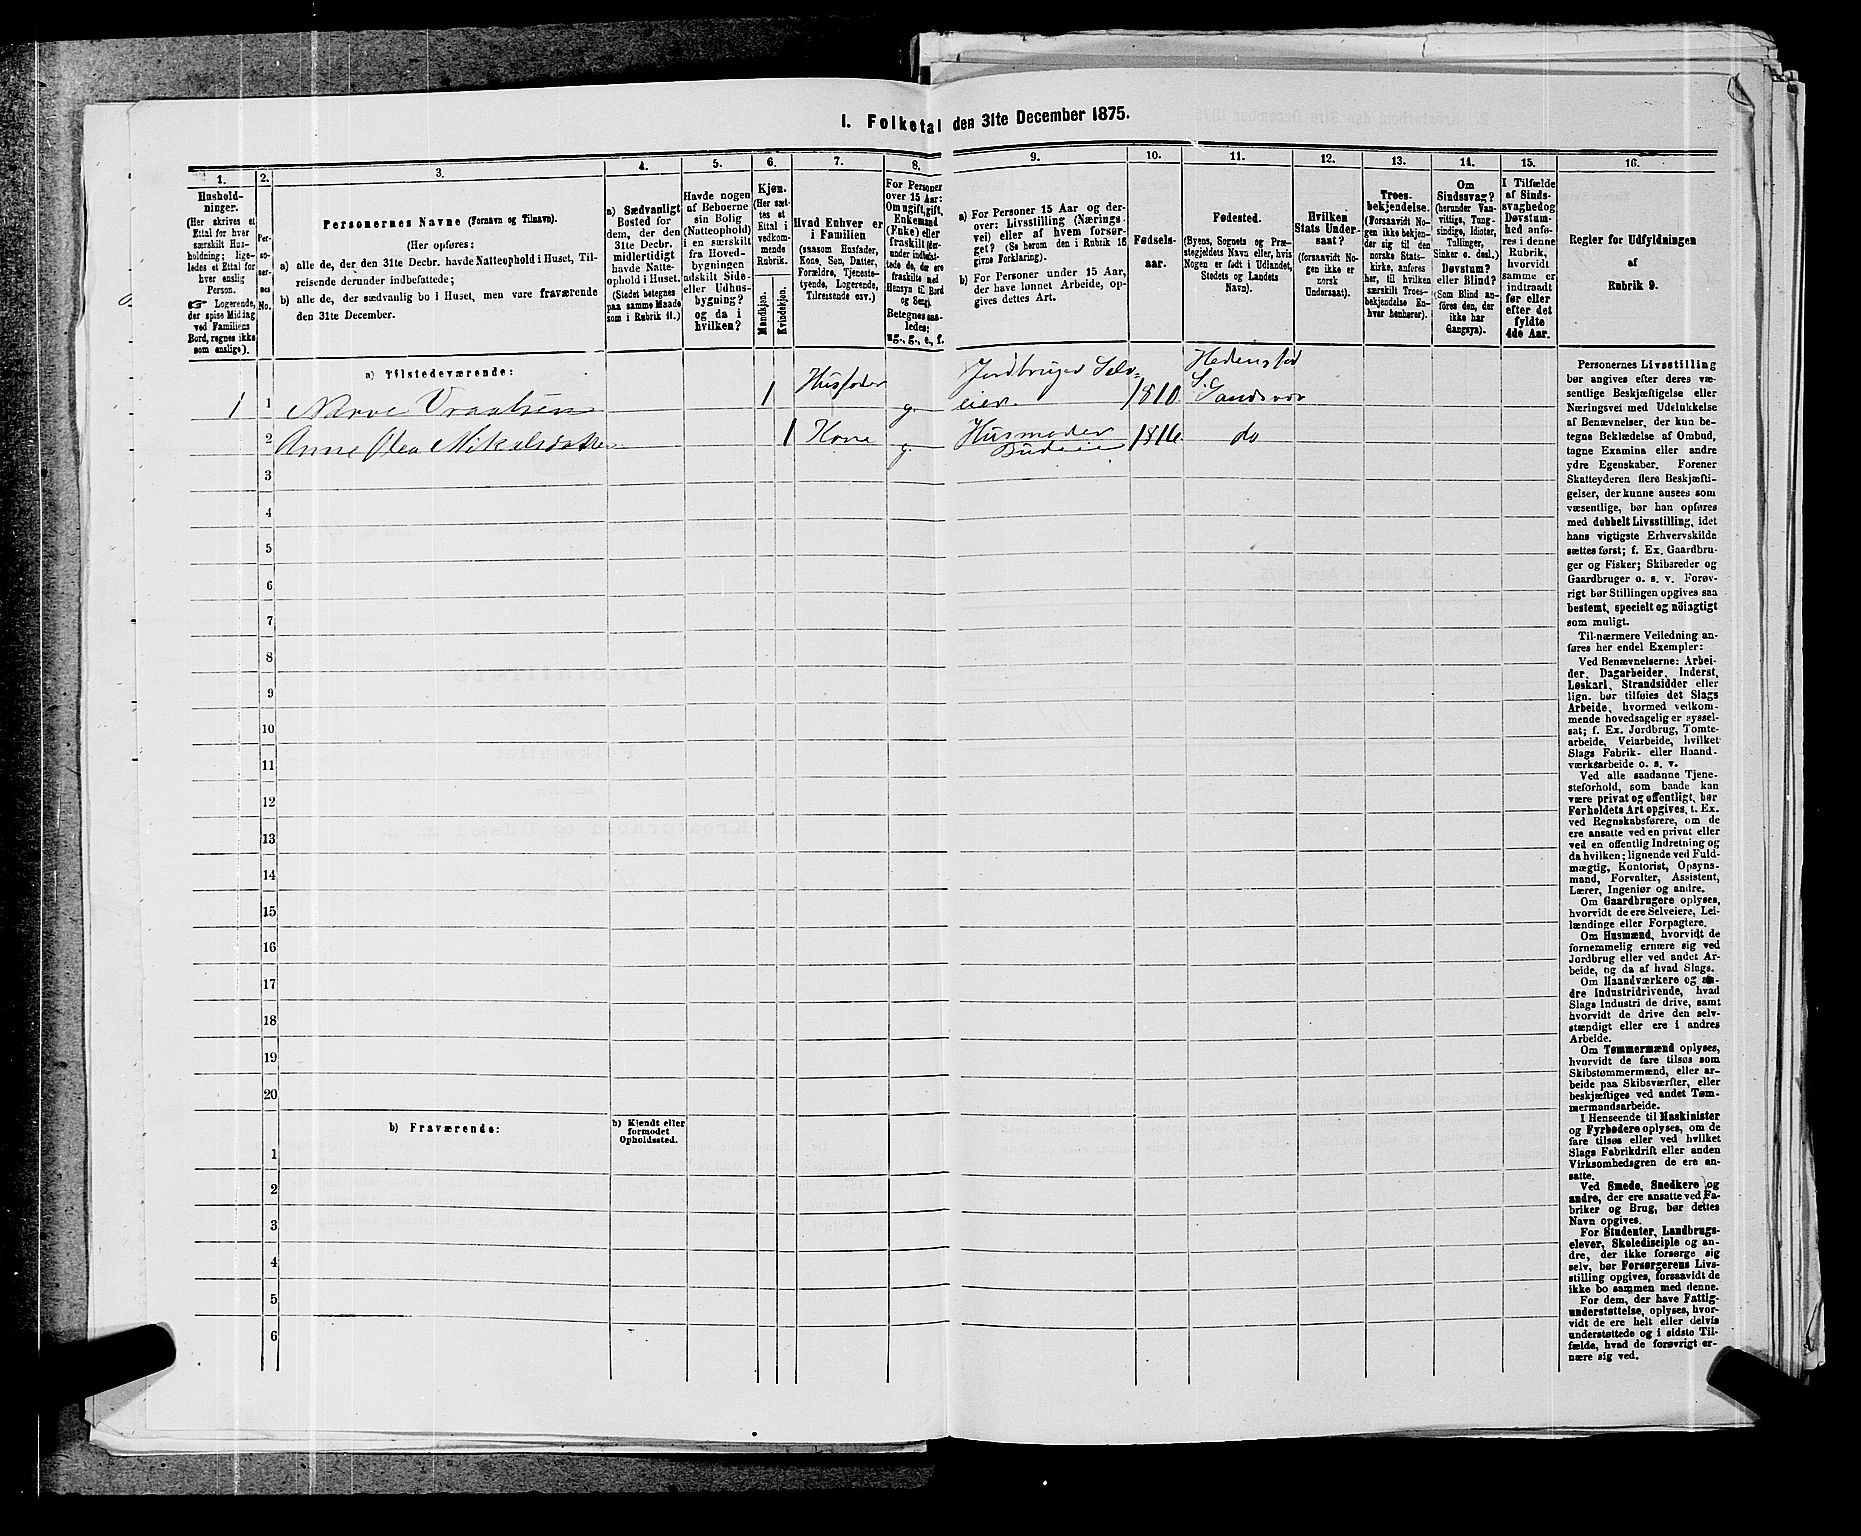 I. Folketal den 31te December 1875.
1.
2.
3.
4.
5.
6.
7.
8.
9.
10.
11.
12.
13.
14.
15.
16.
Hushold-
ninger.
(Her skrives et
Ettal for hver
særskilt Hus-
holdning; lige-
ledes et Ettal for
hver enslig
Person.
☞ Logerende,
der spise Middag
ved Familiens
Bord, regnes ikke
som enslige).
Per-
so-
ner-
nes
No.
Personernes Navne (Fornavn og Tilnavn).
(Her opføres:
a) alle de, der den 31te Decbr. havde Natteophold i Huset, Til-
reisende derunder indbefattede;
b) alle de, der sædvanlig bo i Huset, men vare fraværende
den 31te December.
a) Sædvanligt
Bosted for
dem, der den
31te Decbr.
midlertidigt
havde Natte-
ophold i Huset.
(Stedet betegnes
paa samme Maade
som i Rubrik 11.)
Havde nogen
af Beboerne
sin Bolig
(Natteophold)
i en særskilt
fra Hoved-
bygningen
adskilt Side-
eller Udhus-
bygning?
og da i
hvilken?
Kjøn.
(Her sæt-
tes et
Ettal i
vedkom-
mende
Rubrik.
Mandkjøn.
Kvindekjøn.
Hvad Enhver er
i Familien
(saasom Husfader,
Kone, Søn, Datter,
Forældre, Tjeneste-
tyende, Logerende,
Tilreisende osv.)
For Personer
over 15 Aar:
Om ugift, gift,
Enkemand
(Enke) eller
fraskilt (der-
under indbefat-
tede de, der ere
fraskilte med
Hensyn til Bord
og Seng).
Betegnes saa-
ledes:
ug., g., e., f.
a) For Personer 15 Aar og der-
over: Livsstilling (Nærings-
vei) eller af hvem forsør-
get? (Se herom den i Rubrik 16
givne Forklaring).
b) For Personer under 15 Aar,
der have lønnet Arbeide, op-
gives dettes Art.
Fødsels-
aar.
Fødested.
(Byens, Sognets og Præ-
stegjeldets Navn eller, hvis
Nogen er født i Udlandet,
Stedets og Landets
Navn).
Hvilken
Stats Under-
saat?
(forsaavidt No-
gen ikke er
norsk
Undersaat).
Troes-
bekjendelse.
(Forsaavidt No-
gen ikke bekjen-
der sig til den
norske Stats-
kirke, anføres
her, til hvilken
særskilt Troes-
bekjendelse En-
hver henhører).
Om
Sindssvag?
(herunder Van-
vittige, Tung-
sindige, Idioter,
Tullinger,
Sinker o. desl.)
Døvstum?
eller Blind?
(Som Blind an-
føres den, der
ikke har
Gangsyn).
I Tilfælde
af Sinds-
svaghed og
Døvstum-
hed anfø-
res i denne
Rubrik,
hvorvidt
samme er
indtraadt
før eller
efter det
fyldte
4de Aar.
Regler for Udfyldningen
af
Rubrik 9.
a) Tilstedeværende:
1 1 Narve Vraalsen 1 Husfader g. Jordbruger Selv-
eier 1810 Hedenstad
S. Sandsvær
2 Anne Olea Mikelsdatter 1 Kone g. Husmoder
Budeie 1816 do
3
4
5
6
7
8
9
10
11
12
13
14
15
16
17
18
19
20
b) Fraværende:
b) Kjendt eller
formodet
Opholdssted.
1
2
3
4
5
6
Personernes Livsstilling
bør angives efter deres væ-
sentlige Beskjæftigelse eller
Næringsvei med Udelukkelse
af Benævnelser, der kun be-
tegne Beklædelse af Ombud,
tagne Examina eller andre
ydre Egenskaber. Forener
Skatteyderen flere Beskjæfti-
gelser, der kunne ansees som
væsentlige, bør han opføres
med dobbelt Livsstilling, idet
hans vigtigste Erhvervskilde
sættes først; f. Ex. Gaardbru-
ger og Fisker; Skibsreder og
Gaardbruger o. s. v. Forøv-
rigt bør Stillingen opgives saa
bestemt, specielt og nöiagtigt
som muligt.
Til nærmere Veiledning an-
føres her endel Exempler:
Ved Benævnelserne: Arbei-
der, Dagarbeider, Inderst,
Løskarl, Strandsidder eller
lign. bør tilføies det Slags
Arbeide, hvormed vedkom-
mende hovedsagelig er syssel-
sat; f. Ex. Jordbrug, Tomte-
arbeide, Veiarbeide, hvilket
Slags Fabrik- eller Haand-
værksarbeide o. s. v.
Ved alle saadanne Tjene-
steforhold, som baade kan
være privat og offentligt, bør
Forholdets Art opgives, t. Ex.
ved Regnskabsførere, om de
ere ansatte ved en privat eller
ved en offentlig Indretning og
da hvilken; lignende ved Fuld-
mægtig, Kontorist, Opsyns-
mand, Forvalter, Assistent,
Lærer, Ingeniør og andre.
Om Gaardbrugere oplyses,
hvorvidt de ere Selveiere, Lei-
lændinge eller Forpagtere.
Om Husmænd, hvorvidt de
fornemmelig ernære sig ved
Jordbrug eller ved andet Ar-
beide, og da af hvad Slags.
Om Haandværkere og an-
dre Industridrivende, hvad
Slags Industri de drive, samt
hvorvidt de drive den selv-
stændigt eller ere i andres
Arbeide.
Om Tømmermænd oplyses,
hvorvidt de fare tilsøs som
Skibstømmermænd, eller ar-
beide paa Skibsværfter, eller
beskjæftiges ved andet Tøm-
mermandsarbeide.
I Henseende til Maskinister
og Fyrbødere oplyses, om de
fare tilsøs eller ved hvilket
Slags Fabrikdrift eller anden
Virksomhedsgren de ere an-
satte.
Ved Smede, Snedkere og
andre, der ere ansatte ved Fa-
briker og Brug, bør dettes
Navn opgives.
For Studenter, Landbrugs-
elever, Skoledisciple og an-
dre, der ikke forsørge sig
selv, bør Forsørgerens Livs-
stilling opgives, forsaavidt de
ikke bo sammen med denne.
For dem, der have Fattig-
understøttelse, oplyses, hvor-
vidt de ere helt eller delvis
understøttede og i sidste Til-
fælde, hvad de forøvrigt er-
nære sig ved.